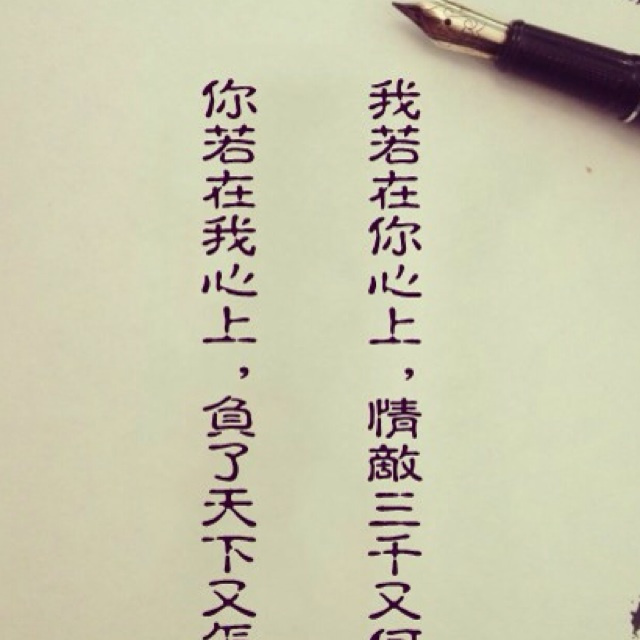 我若在你心上，情敵三千又何
你若在我心上，負了天下又怎